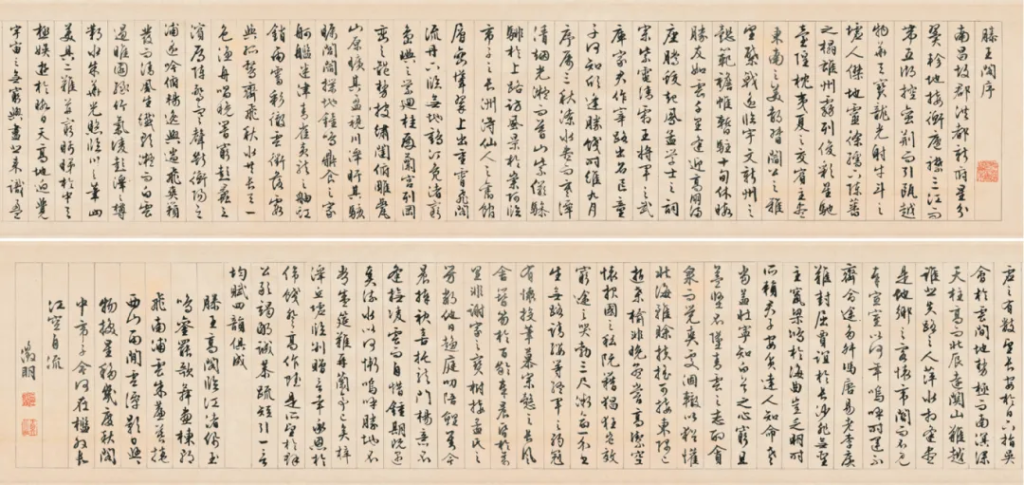 滕王閣序
南昌故郡洪都新府星分
翼軫地接衡廬襟三江而
帶五湖控蠻荊而引甌越
物華天寶龍光射牛斗之
墟人傑地靈徐孺下陳蕃
之榻雄州霧列俊彩星馳
臺隍枕夷夏之交賓主盡
東南之美都督閻公之雅
望棨戟遙臨宇文新州之
懿範襜帷暫駐十旬休暇
勝友如雲千里逢迎高朋滿
座騰蛟起鳳孟學士之詞
宗紫電清霜王將軍之武
庫家君作宰路出名區童
子何知躬逢勝餞時維九月
序屬三秋潦水盡而寒潭
清煙光凝而暮山紫儼驂
騑於上路訪風景於崇阿臨
帝子之長洲得仙人之舊館
層巒聳翠上出重霄飛閣
流丹下臨無地鶴汀鳧渚窮
島嶼之縈迴桂殿蘭宮列岡
巒之體勢披繡闥俯雕甍
山原曠其盈視川澤盱其駭
矚閭閻撲地鐘鳴鼎食之家
舸艦迷津青雀黃龍之舳虹
銷雨霽彩徹雲衢落霞
與孤鶩齊飛秋水共長天一
色漁舟唱晚響窮彭蠡之
濱雁陣驚寒聲斷衡陽之
浦遙吟俯暢逸興遄飛爽籟
發而清風生纖歌凝而白雲
遏睢園綠竹氣凌彭澤之樽
鄴水朱華光照臨川之筆四
美具二難并窮睇眄於中天
極娛遊於暇日天高地迥覺
宇宙之無窮興盡悲來識盈
虛之有數望長安於日下指吳
會於雲間地勢極而南溟深
天柱高而北辰遠關山難越
誰悲失路之人萍水相逢盡
是他鄉之客懷帝閽而不見
奉宣室以何年嗚呼時運不
齊命途多舛馮唐易老李廣
難封屈賈誼於長沙非無聖
主竄梁鴻於海曲豈乏明時
所賴君子安貧達人知命老
當益壯寧知白首之心窮且
益堅不墜青雲之志酌貪
泉而覺爽處涸轍以猶懽
北海雖賒扶搖可接東隅已
逝桑榆非晚孟嘗高潔空
懷報國之心阮籍猖狂豈效
窮途之哭勃三尺微命一介書
生無路請纓等終軍之弱冠
有懷投筆慕宗愨之長風
舍簪笏於百齡奉晨昏於萬
里非謝家之寶樹接孟氏之
芳鄰他日趨庭叨陪鯉對今
晨捧袂喜托龍門楊意不
逢撫凌雲而自惜鍾期既遇
奏流水以何慚嗚呼勝地不
常盛筵難再蘭亭已矣梓
澤丘墟臨別贈言幸承恩於
偉餞登高作賦是所望於群
公敢竭鄙誠恭疏短引一言
均賦四韻俱成
滕王高閣臨江渚佩玉
鳴鸞罷歌舞畫棟朝
飛南浦雲朱簾暮捲
西山雨閒雲潭影日悠悠
物換星移幾度秋閣
中帝子今何在檻外長
江空自流
徵明